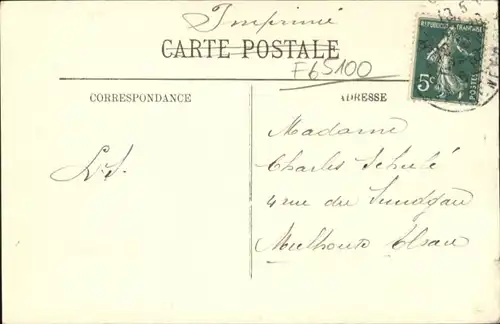 Imprimé
CARTE POSTALE
F65100
REPUBLIQUE FRANÇAISE
5c
POSTES
CORRESPONDANCE
ADRESSE
Madame
Charles Schulé
4 rue du Sundgau
Mulhouse Elsau